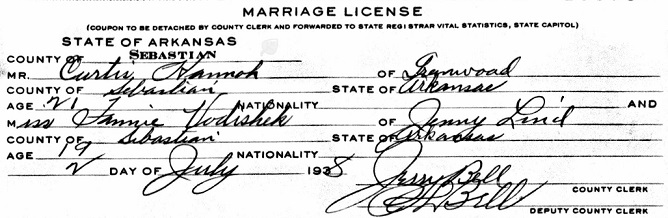 MARRIAGE LICENSE
(COUPON TO BE DETACHED BY COUNTY CLERK AND FORWARDED TO STATE REGISTRAR VITAL STATISTICS, STATE CAPITOL)
STATE OF ARKANSAS
COUNTY OF SEBASTIAN
MR. Curtis Hannah OF Greenwood
COUNTY OF Sebastian STATE OF Arkansas
AGE 21 NATIONALITY AND
Miss Fannie Vodishek OF Jenny Lind
COUNTY OF Sebastian STATE OF Arkansas
AGE 19 NATIONALITY
2 DAY OF July 1938 Jerry Bell COUNTY CLERK
Bell DEPUTY COUNTY CLERK